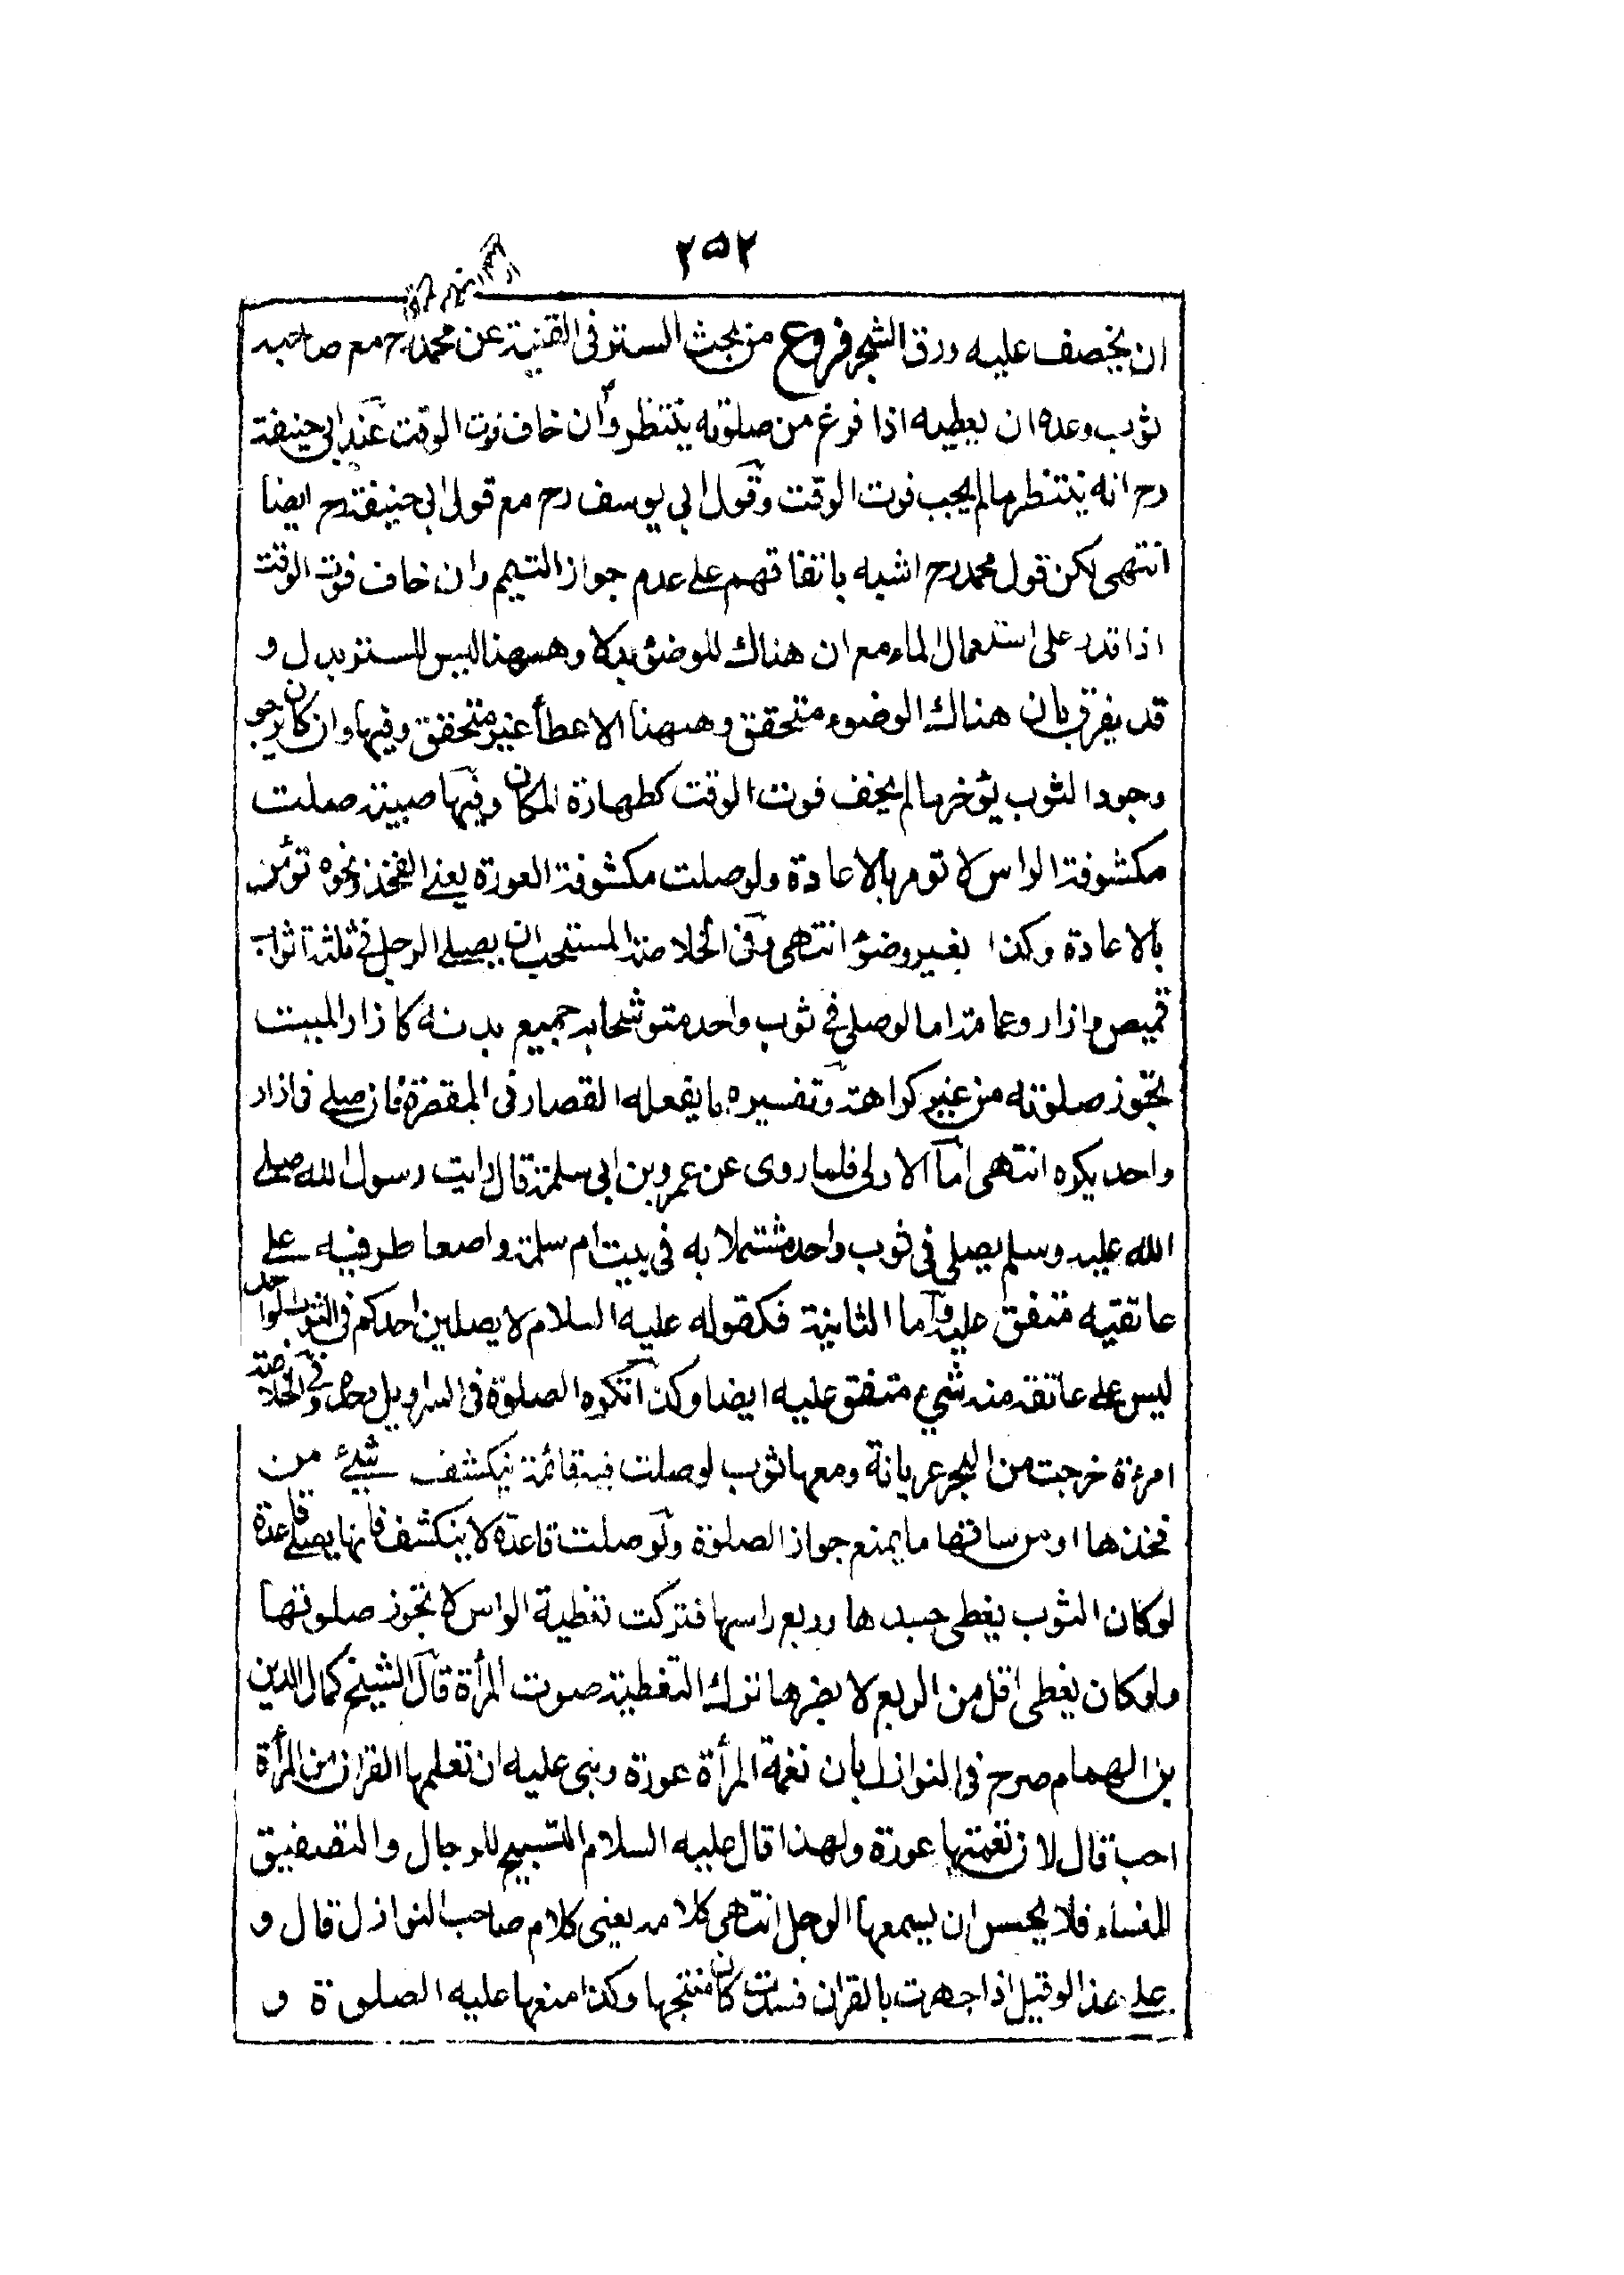 ٢٥٢
ان يخصف عليه ورق الشجر فروع من بحث الستر فى القنية عن محمد رح مع صاحبه
ثوب وعده ان يعطيه اذا فرغ من صلوته ينتظر وان خاف فوت الوقت عند ابى حنيفة
رح انه ينتظر مالم يجب فوت الوقت وقول ابى يوسف رح مع قول ابى حنيفة رح ايضا
انتهى لكن قول محمد رح اشبه باتفاقهم على عدم جواز التيمم وان خاف فوت الوقت
اذا قدر على استعمال الماء مع ان هناك للوضؤ بدلا وههنا ليس للستر بدل و
قد يفرق بان هناك الوضوء متحقق وههنا الاعطأ غير متحقق وفيها وان كان يرجو
وجود الثوب يؤخر مالم يخف فوت الوقت كطهارة المكان وفيها صبية صلت
مكشوفة الراس لا تومر بالاعادة ولو صلت مكشوفة العورة يعنى الفخذ ونحوه تؤمر
بالاعادة وكذا بغير وضؤ انتهى وفى الخلاصة المستحب ان يصلى الرجل فى ثلثة اثواب
قميص وازار وعمامة اما لو صلى فى ثوب واحد متوشحا به جميع بدنه كازار الميت
تجوز صلوته من غير كراهة وتفسيره ما يفعله القصار فى المقصرة فان صلى فى ازار
واحد يكره انتهى اما الاولى فلما روى عن عمرو بن ابى سلمة قال رايت رسول الله صلى
الله عليه وسلم يصلى فى ثوب واحد مشتملا به فى بيت ام سلمة واضعا طرفيه على
عاتقيه متفق عليه واما الثانية فكقوله عليه السلام لا يصلين احدكم فى الثوب الواحد
ليس على عاتقه منه شيء متفق عليه ايضا وكذا تكره الصلوة فى السراويل وحده وفى الخلاصة
امرءة خرجت من البحر عريانة ومعها ثوب لو صلت فيه قائمة ينكشف شيئ من
فخذها او من ساقها ما يمنع جواز الصلوة ولو صلت قاعدة لا ينكشف فانها يصلى قاعدة
لو كان الثوب يغطى جسدها وربع راسها فتركت تغطية الراس لا تجوز صلوتها
ولو كان يغطى اقل من الربع لا يضرها ترك التغطية صوت المرأة قال الشيخ كمال الدين
بن الهمام صرح فى النوازل بان نغمة المرأة عورة وبنى عليه ان تعلمها القران من المرأة
احب قال لان نغمتها عورة ولهذا قال عليه السلام التسبيح للرجال والتصفيق
للنساء فلا يحسن ان يسمعها الرجل انتهى كلامه يعنى كلام صاحب النوازل قال و
على هذا لو قيل اذا جهرت بالقران فسدت كان متجها وكذا منعها عليه الصلوة و